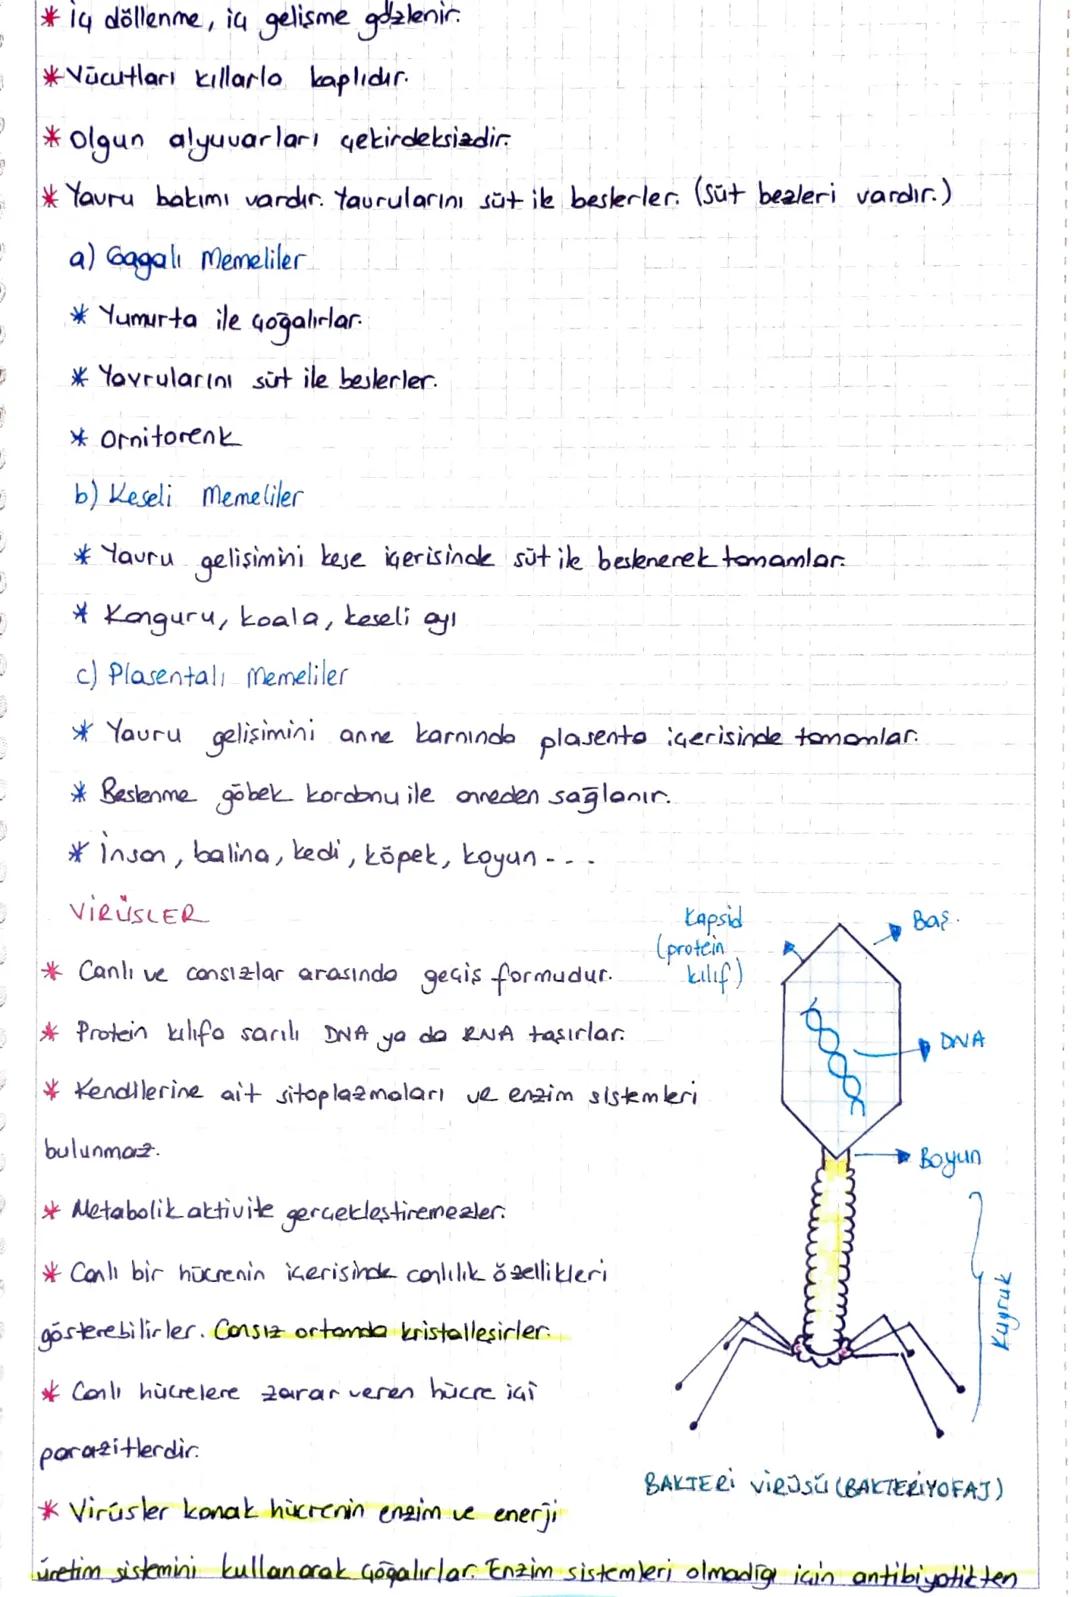 * iç döllenme, iç gelişme gözlenir.
* Vücutları kıllarla kaplıdır.
* Olgun alyuvarları çekirdeksizdir.
* Yavru bakımı vardır. Yavrularını süt ile beslerler. (Süt bezleri vardır.)
a) Gagalı Memeliler
* Yumurta ile çoğalırlar.
* Yavrularını süt ile beslerler.
* Ornitorenk
b) Keseli Memeliler
* Yavru gelişimini kese içerisinde süt ile beslenerek tamamlar.
* Kanguru, koala, keseli ayı
c) Plasentalı Memeliler
* Yavru gelişimini anne karnında plasenta içerisinde tamamlar.
* Beslenme göbek kordonu ile anneden sağlanır.
* İnsan, balina, kedi, köpek, koyun - - .
VİRÜSLER
* Canlı ve cansızlar arasında geçiş formudur.
* Protein kılıfa sarılı DNA ya da RNA taşırlar.
* Kendilerine ait sitoplazmaları ve enzim sistemleri
bulunmaz.
* Metabolik aktivite gerçekleştiremezler.
* Canlı bir hücrenin içerisinde canlılık özellikleri
gösterebilirler. Cansız ortamda kristalleşirler.
* Canlı hücrelere zarar veren hücre içi
parazitlerdir.
* Virüsler konak hücrenin enzim ve enerji
üretim sistemini kullanarak çoğalırlar. Enzim sistemleri olmadığı için antibiyotikten
Kapsid
(protein
kılıf)
Baş.
DNA
Boyun
Kuyruk
BAKTERİ VİRÜSÜ (BAKTERİYOFAJ)